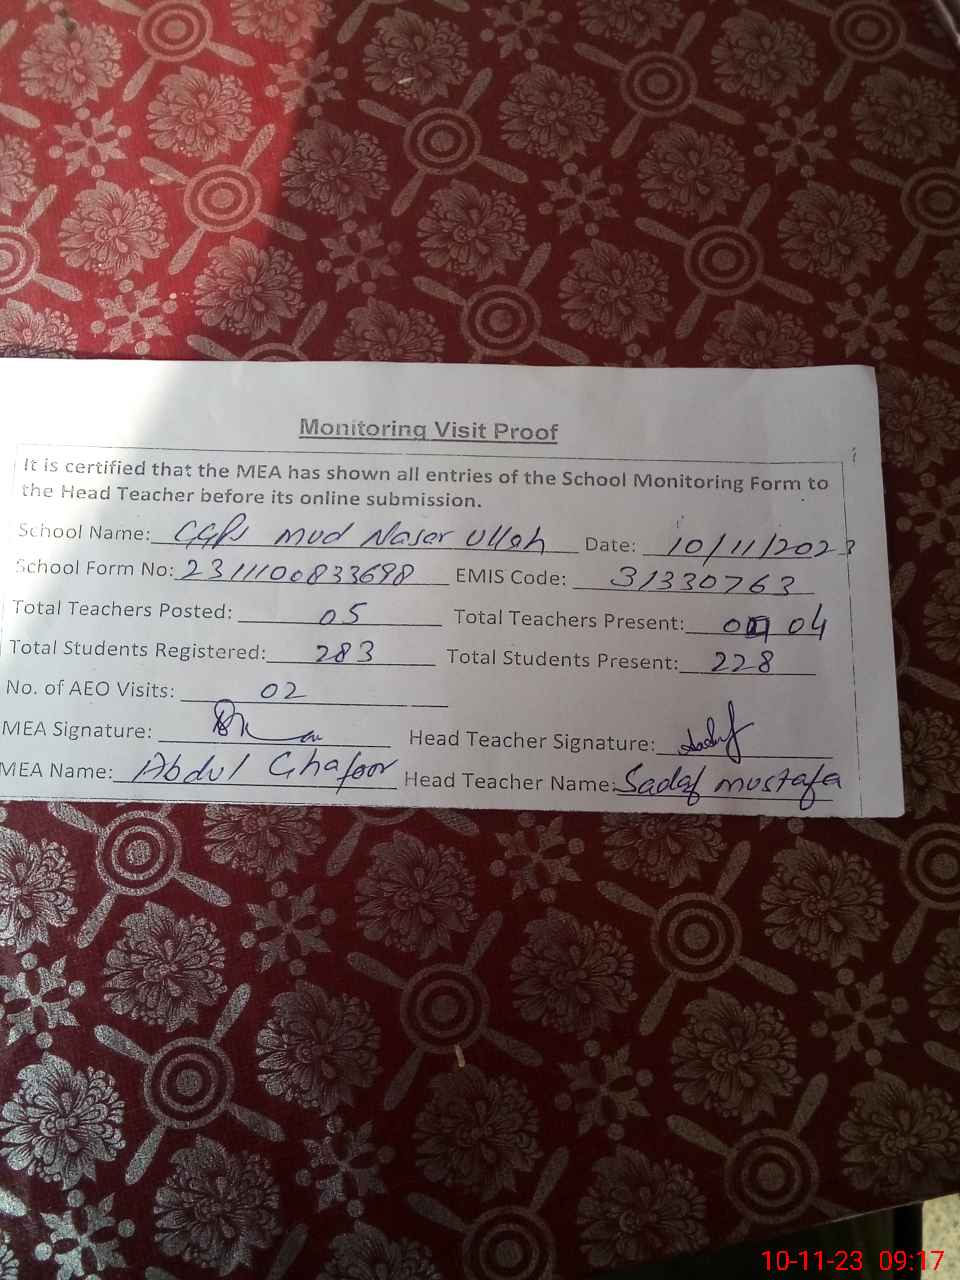 Monitoring Visit Proof
It is certified that the MEA has shown all entries of the School Monitoring Form to
the Head Teacher before its online submission.
School Name: GGPS Mud Naser Ullah Date: 10/11/2023
School Form No: 2311100833698 EMIS Code: 31330763
Total Teachers Posted: 05 Total Teachers Present: 04
Total Students Registered: 283 Total Students Present: 228
No. of AEO Visits: 02
MEA Signature: Head Teacher Signature:
MEA Name: Abdul Ghafoor Head Teacher Name: Sadaf mustafa
10-11-23 09:17